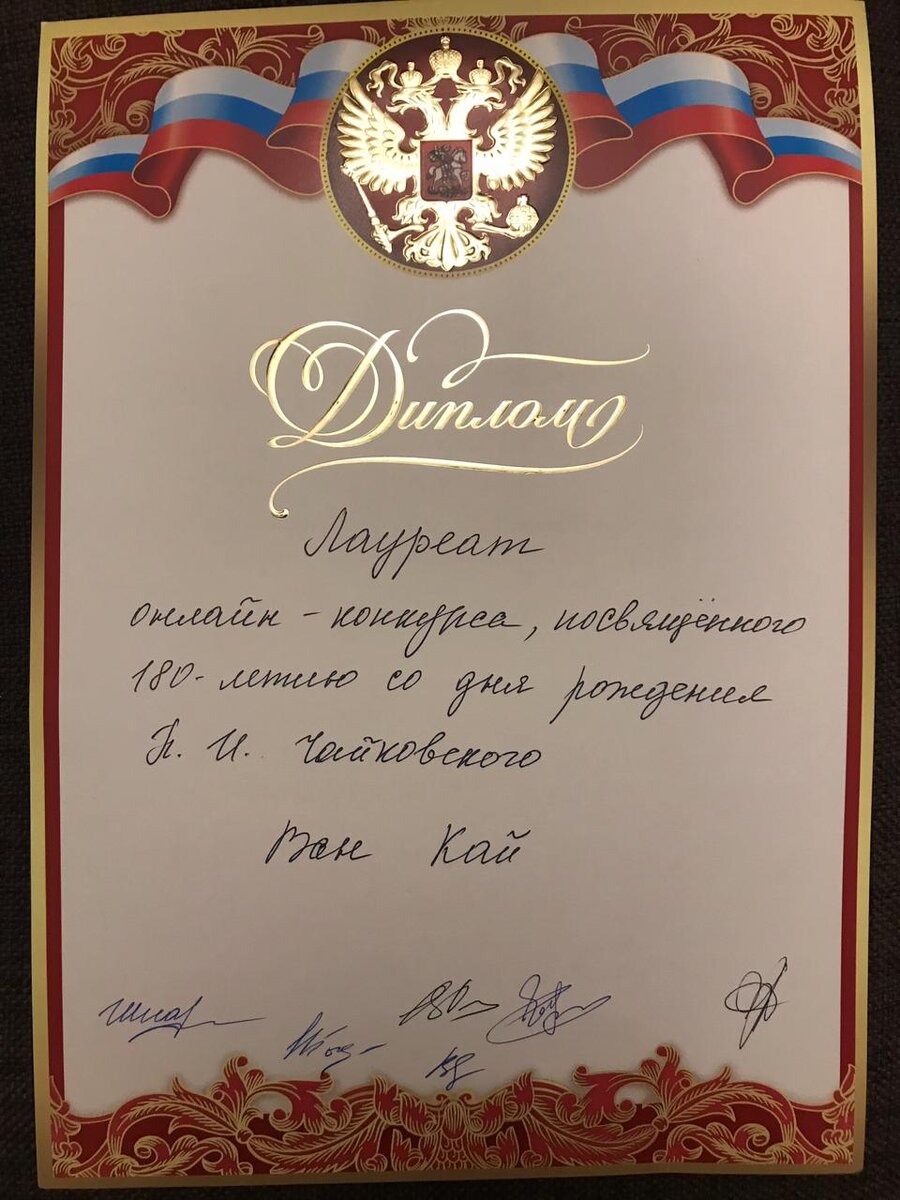 Диплом
Лауреат
онлайн - конкурса, посвящённого
180-летию со дня рождения
П. И. Чайковского
Ван Кай